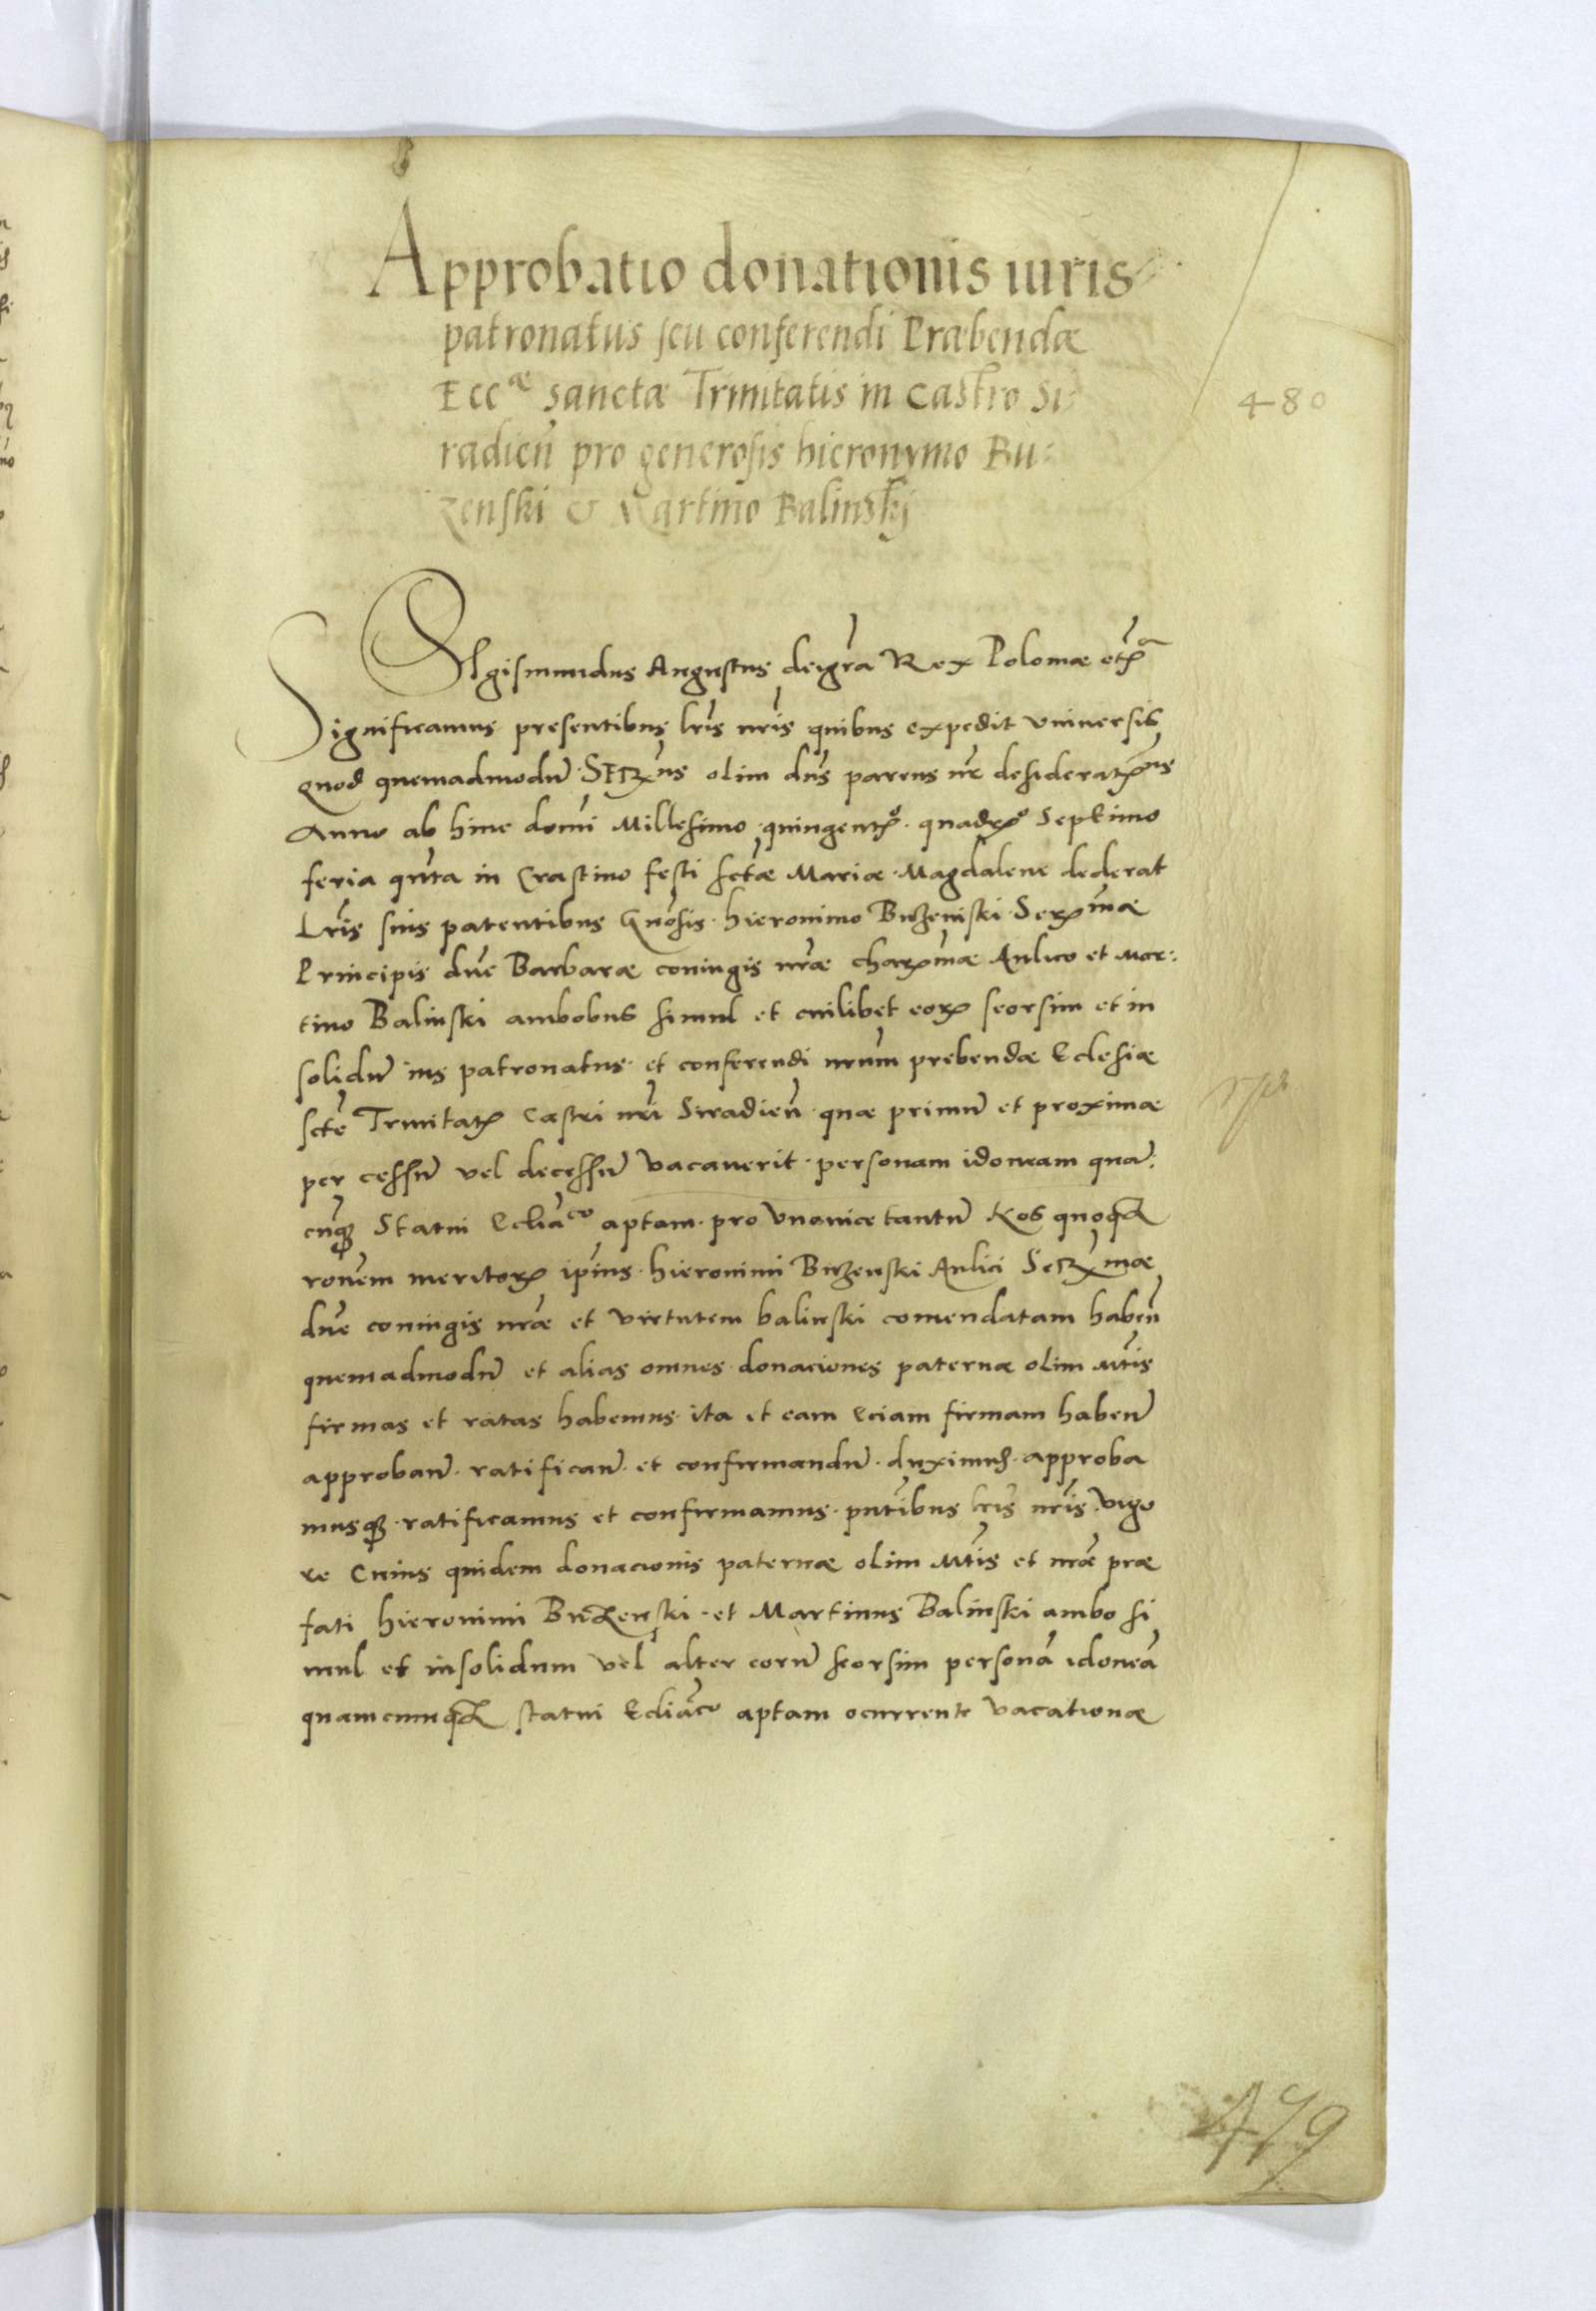 Approbatio donationis iuris
patronatus seu conferendi Præbendæ
Ecc^æ Sanctæ Trinitatis in Castro Si:
radien̄ pro generosis hieronymo Bu:
zenski & Martino Balinskj
480
SIgismundus Augustus dei gr̄a Rex Poloniæ etc̄
Significamus presentibus lr̄is nr̄is quibus expedit vniversis
quod quemadmodū Serx̄us olim dn̄s parens nr̄ desideratx̄us
Anno ab hinc domī Millesimo quingentx̊ quadrx̊ Septimo
feria qn̄ta in Crastino festi sctæ Mariæ Magdalene dederat
Lr̄is suis patentibus Gn̄osis hieronimo Buzeniski Serx̄mæ
Principis dn̄e Barbaræ coniugis nr̄æ charx̄mæ Aulico et Mar:
tino Balinski ambobus simul et cuilibet eorꝝ seorsim et in
solidū ius patronatus et conferendi nr̄um prebendæ Eclesiæ
sctē Trinitatꝭ Castri nr̄i Siradien̄ quæ primū et proximæ
per cessū vel decessū vacaverit personam idoneam quā:
cūqꝫ Statui Eccliāco aptam pro vna vice tantū Nos quoqꝫ
ronem meritorꝝ ipīus hieronimi Buzenski Aulici Serx̄mæ
dn̄e coniugis nr̄æ et virtutem balinski comendatam haben̄
quemadmodū et alias omnes donaciones paternæ olim Mt̄is
firmas et ratas habemus ita et eam eciam firmam habenꝰ
approbanꝰ ratificanꝰ et confirmandū duximus approba
musqꝫ ratificamus et confirmamus pnt̄ibus lr̄is nr̄is vigo
re Cuius quidem donacionis paternæ olim Mt̄is et nr̄æ præ
fati hieronimi Buzenski et Martinus Balinski ambo si
mul et insolidum vel alter eorū seorsim personā idoneā
quamcumqꝫ statui Eccliāco aptam ocurrente vacationæ
479